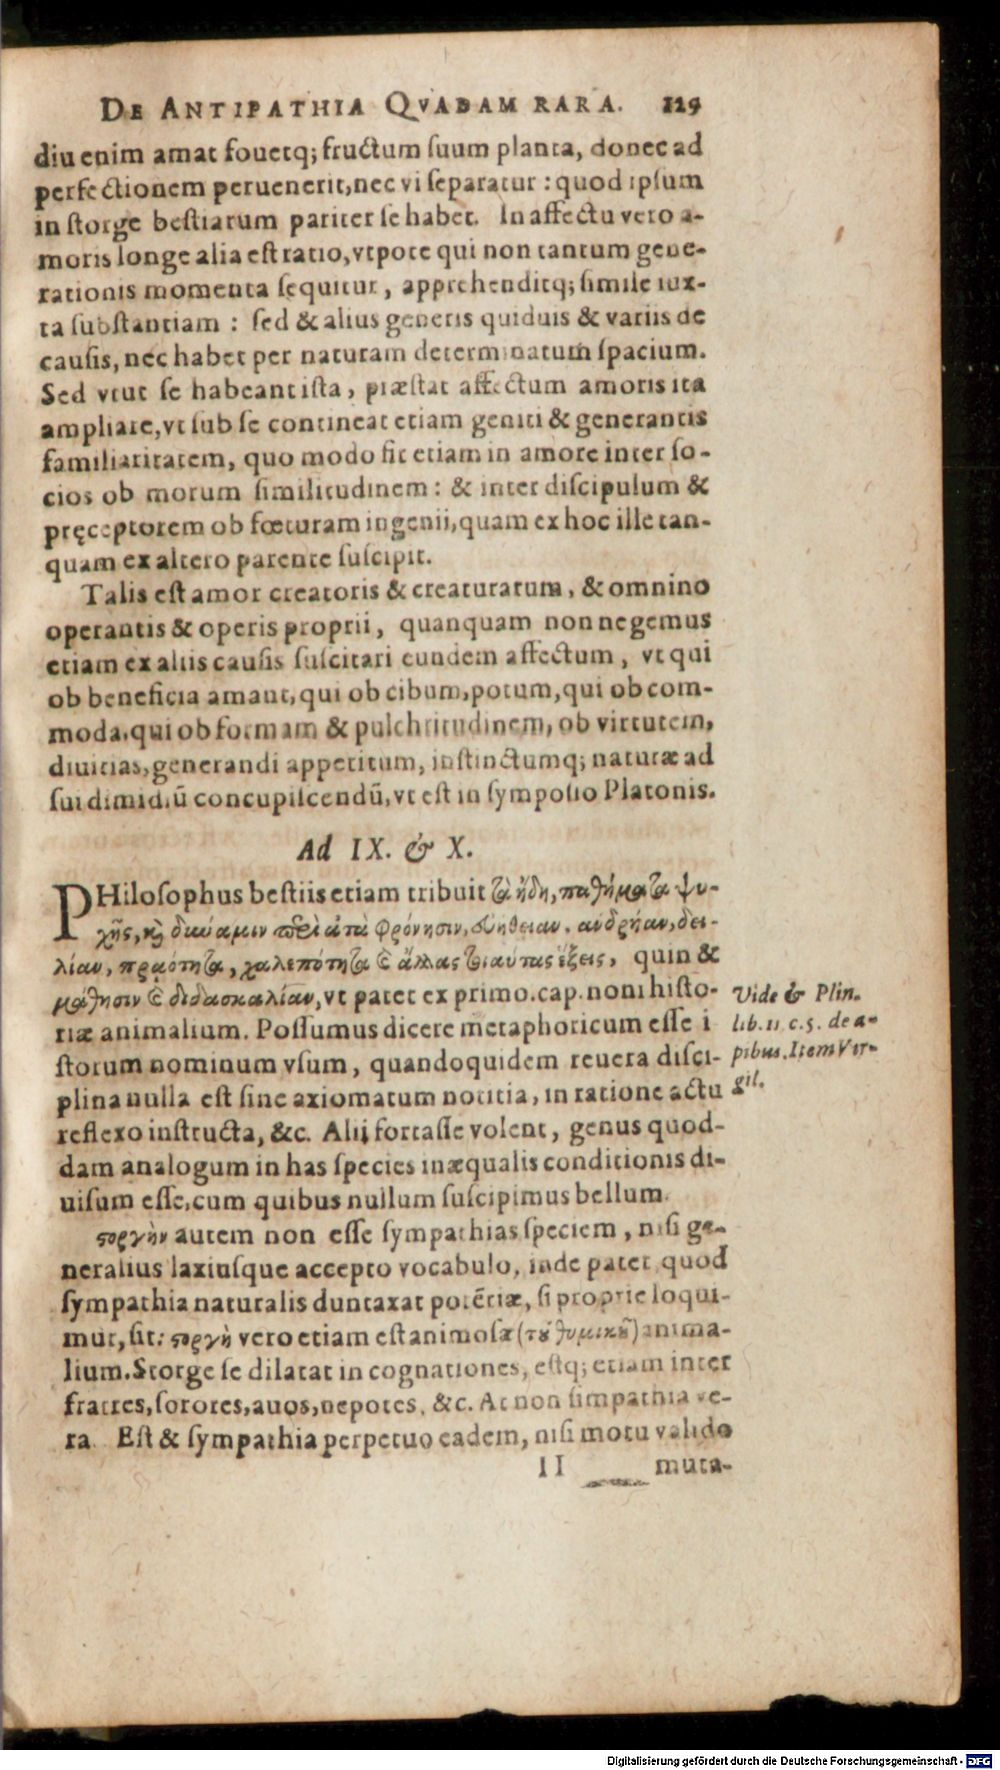 DE ANTIPATHIA QVADAM RARA. 129
diu enim amat fouetq; fructum suum planta, donec ad
perfectionem peruenerit, nec vi separatur: quod ipsum
in storge bestiarum pariter se habet. In affectu vero a-
moris longe alia est ratio, vtpote qui non tantum gene-
rationis momenta sequitur, apprehenditq; simile iux-
ta substantiam: sed & alius generis quiduis & variis de
causis, nec habet per naturam determinatum spacium.
Sed vtut se habeant ista, præstat affectum amoris ita
ampliare, vt sub se contineat etiam geniti & generantis
familiaritatem, quo modo fit etiam in amore inter so-
cios ob morum similitudinem: & inter discipulum &
pręceptorem ob fœturam ingenii, quam ex hoc ille tan-
quam ex altero parente suscipit.
Talis est amor creatoris & creaturarum, & omnino
operantis & operis proprii, quanquam non negemus
etiam ex aliis causis suscitari eundem affectum, vt qui
ob beneficia amant, qui ob cibum, potum, qui ob com-
moda, qui ob formam & pulchritudinem, ob virtutem,
diuitias, generandi appetitum, instinctumq; naturæ ad
sui dimidiū concupiscendū, vt est in symposio Platonis.
Ad IX. & X.
PHilosophus bestiis etiam tribuit τὰ ἤδη, παθήματα ψυ-
χῆς, καὶ δύναμιν φρόνησιν, ἀνδρήαν, δει-
λίαν, πραότητα, χαλεπότητα καὶ ἄλλας τοιαύτας ἕξεις, quin &
μάθησιν καὶ διδασκαλίαν, vt patet ex primo. cap. noni histo-
riæ animalium. Possumus dicere metaphoricum esse i
storum nominum vsum, quandoquidem reuera disci-
plina nulla est sine axiomatum notitia, in ratione actu
reflexo instructa, &c. Alij fortasse volent, genus quod-
dam analogum in has species inæqualis conditionis di-
uisum esse, cum quibus nullum suscipimus bellum.
στοργὴν autem non esse sympathias speciem, nisi ge-
neralius laxiusque accepto vocabulo, inde patet quod
sympathia naturalis duntaxat potētiæ, si proprie loqui-
mur, sit: στοργὴ vero etiam est animosæ (τοῦ θυμικοῦ) anima-
lium. Storge se dilatat in cognationes, estq; etiam inter
fratres, sorores, auos, nepotes, &c. At non simpathia ve-
ra. Est & sympathia perpetuo eadem, nisi motu valido
II muta-
Vide & Plin.
lib. 11 c. 5. de a-
pibus. Item Vir-
gil.
Digitalisierung gefördert durch die Deutsche Forschungsgemeinschaft - DFG